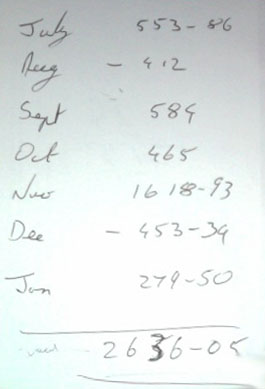 July 553-86
Aug - 412
Sept 584
Oct 465
Nov 1618-93
Dec - 453-34
Jan 279-50
2636-05